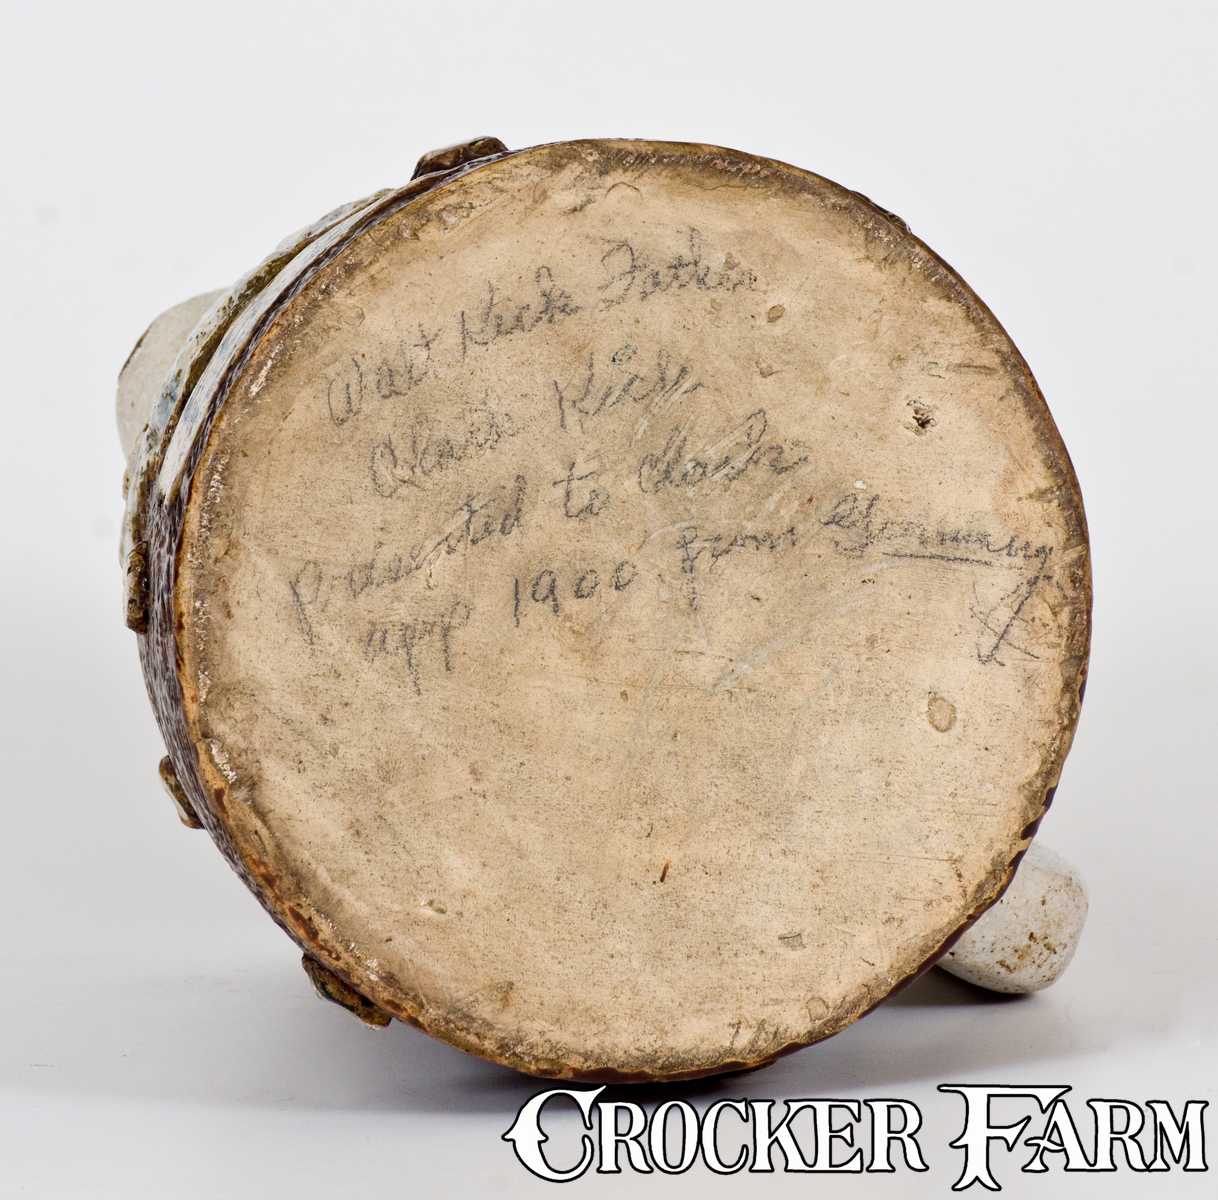 Walt Kirk Father
Clark Kirk
presented to Clark
app 1900 from Germany
CROCKER FARM